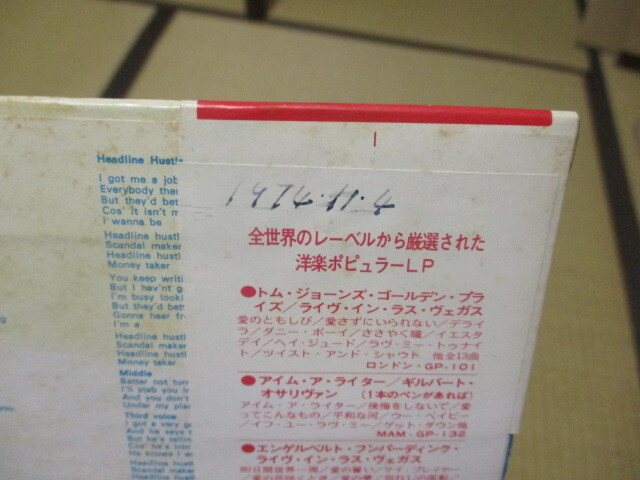 Headline Hustle
I got me a job
Everybody
But they'd bet
Cos' it isn't
I wanna be
Headline hustl
Scandal maker
Headline hustl
Money taker
You keep writi
But I hav'nt
I'm busy looki
But they'd bet
Gonna hear
I'm a
Headline hustl
Scandal maker
Headline hustl
Money taker
Middle
Better not turn
I'll stab you
And you don't
Under my
Third voice
I got a very
And he says
But he's
Cos' he's
He knows I
Headline hustl
Scandal
Headline
Money
1974.11.4
全世界のレーベルから厳選された
洋楽ポピュラーLP
●トム・ジョーンズ・ゴールデン・プラ
イズ/ライヴ・イン・ラス・ヴェガス
愛のともしび/愛さずにいられない/デライ
ラ/ダニー・ボーイ/ささやく瞳/イエスタ
デイ/ヘイ・ジュード/ラヴ・ミー・トゥナイ
ト/ツイスト・アンド・シャウト 他全13曲
ロンドン・GP-101
●アイム・ア・ライター/ギルバート・
オサリヴァン (1本のペンがあれば)
アイム・ア・ライター/後悔をしないで/愛
ってこんなもの/平和な河/ウー・ベイビー
/イフ・ユー・ラヴ・ミー/ゲット・ダウン他
MAM-GP-132
●エンゲルベルト・フンパーディンク・
ライヴ・イン・ラス・ヴェガス
80日間世界一周/愛の誓い/マイ・プレイヤー